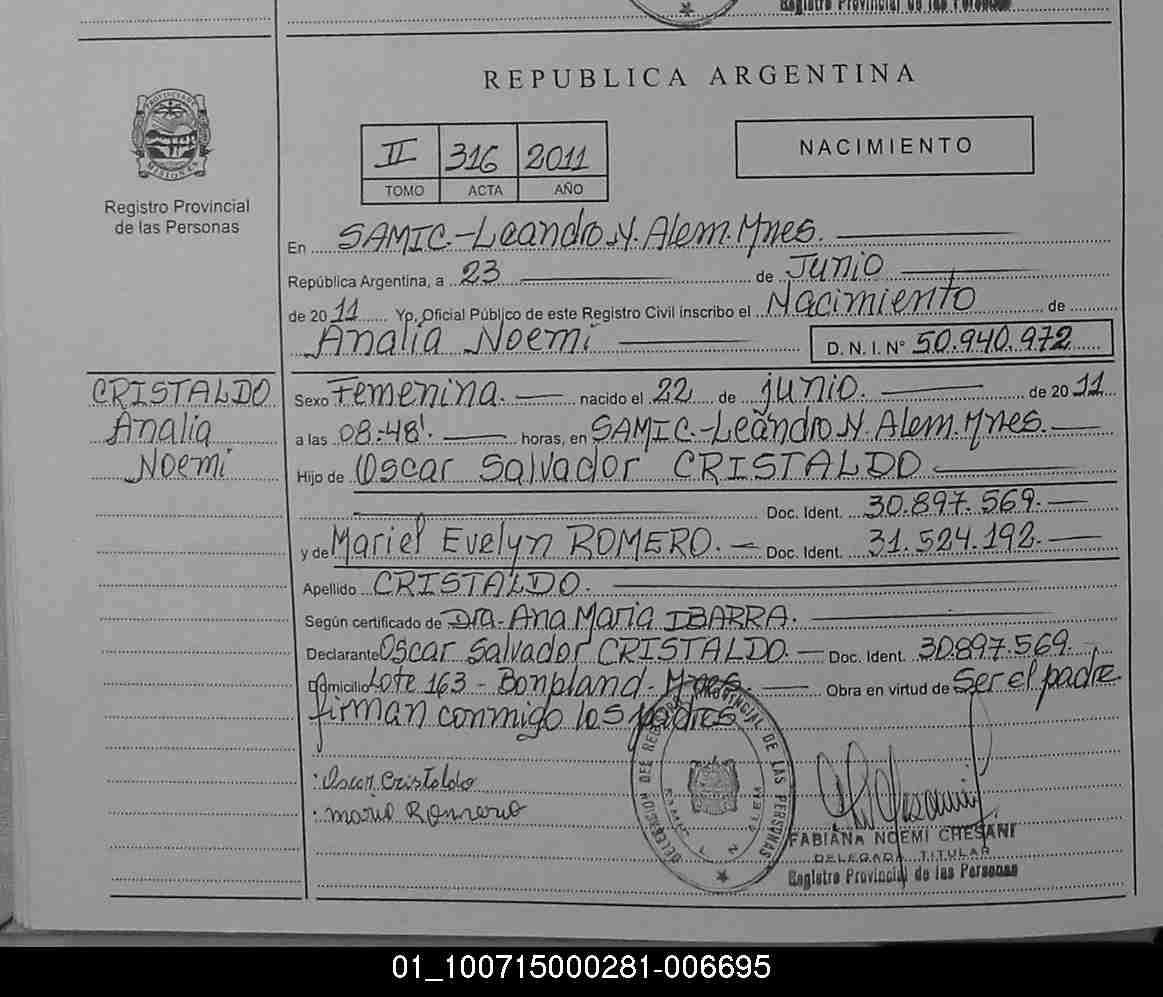 Registro Provincial de las Personas
REPUBLICA ARGENTINA
PROVINCIA DE
MISIONES
Registro Provincial
de las Personas
II 316 2011
TOMO ACTA AÑO
NACIMIENTO
En SAMIC.-Leandro N. Alem. Mnes.
República Argentina, a 23 de Junio
de 2011 Yo, Oficial Público de este Registro Civil inscribo el Nacimiento de
Analia Noemi D. N. I. Nº 50.940.972
CRISTALDO
Analia
Noemi
Sexo Femenina. nacido el 22 de junio. de 2011
a las 08:48'. horas, en SAMIC.-Leandro N. Alem. Mnes.
Hijo de Oscar Salvador CRISTALDO
Doc. Ident. 30.897.569.
y de Mariel Evelyn ROMERO. Doc. Ident. 31.524.192.
Apellido CRISTALDO.
Según certificado de Dra. Ana Maria IBARRA.
Declarante Oscar Salvador CRISTALDO. Doc. Ident. 30.897.569.
Domicilio Lote 163 - Bonpland. Mnes. Obra en virtud de Ser el padre
firman conmigo los padres
Oscar Cristaldo
Romero
DELEGACION DEL REGISTRO PROVINCIAL DE LAS PERSONAS
SAMIC L. N. ALEM
FABIANA NOEMI CHESANI
DELEGADA TITULAR
Registro Provincial de las Personas
01_100715000281-006695